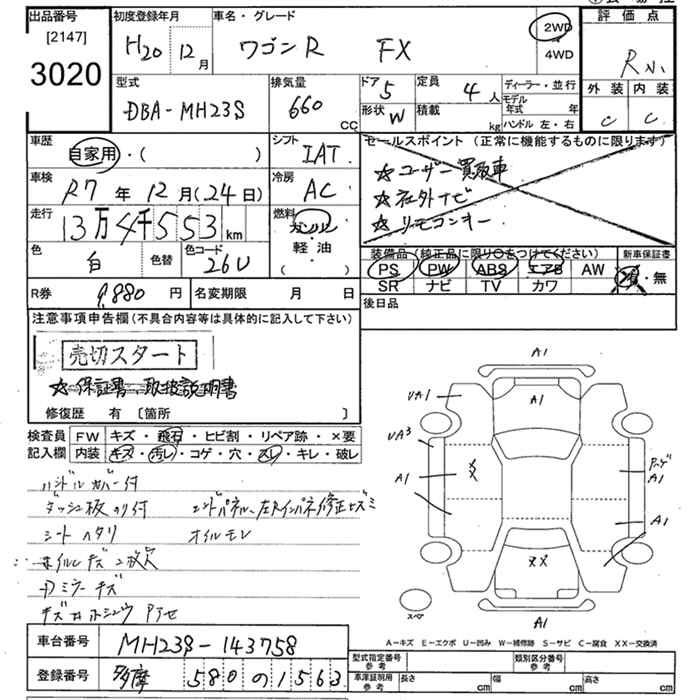 出品番号 [2147] 3020
初度登録年月 H20 12月
車名・グレード ワゴンR FX
2WD・4WD
評価点 R小
外装 C 内装 C
型式 DBA-MH23S
排気量 660 CC
ドア 5 形状 W
定員 4人 積載 kg
ディーラー・並行
モデル年式 年
ハンドル 左・右
車歴 自家用・( )
シフト IAT
セールスポイント (正常に機能するものに限ります)
☆ユーザー買取車
☆社外ナビ
☆リモコンキー
車検 R7年12月(24日)
冷房 AC
走行 13万4千553km
燃料 ガソリン・軽油・( )
色 白 色替 色コード 26U
装備品 (純正品に限り○をつけてください)
PS PW ABS エアB AW
SR ナビ TV カワ
新車保証書 有・無
R券 9,880円 名変期限 月 日
後日品
注意事項申告欄(不具合内容等は具体的に記入して下さい)
売切スタート
☆保証書、取扱説明書
修復歴 有 [箇所 ]
検査員記入欄 FW キズ・飛石・ヒビ割・リペア跡・×要
内装 キズ・汚レ・コゲ・穴・スレ・キレ・破レ
ハンドルカバー付
ダッシュ板のり付 エンドパネル、左Rインパネ修正ヒズミ
シートヘタリ オイルモレ
ホイルキズ2枚欠
ドミラーキズ
A1
A1
UA1
UA3
A1
××
A1
A1
××
A1
スペア
A-キズ E-エクボ U-凹み W-補修跡 S-サビ C-腐食 XX-交換済
車台番号 MH23S-143758
登録番号 多摩 580 の 1563
型式指定番号 参考 類別区分番号 参考
車庫証明用 参考 長さ cm 幅 cm 高さ cm